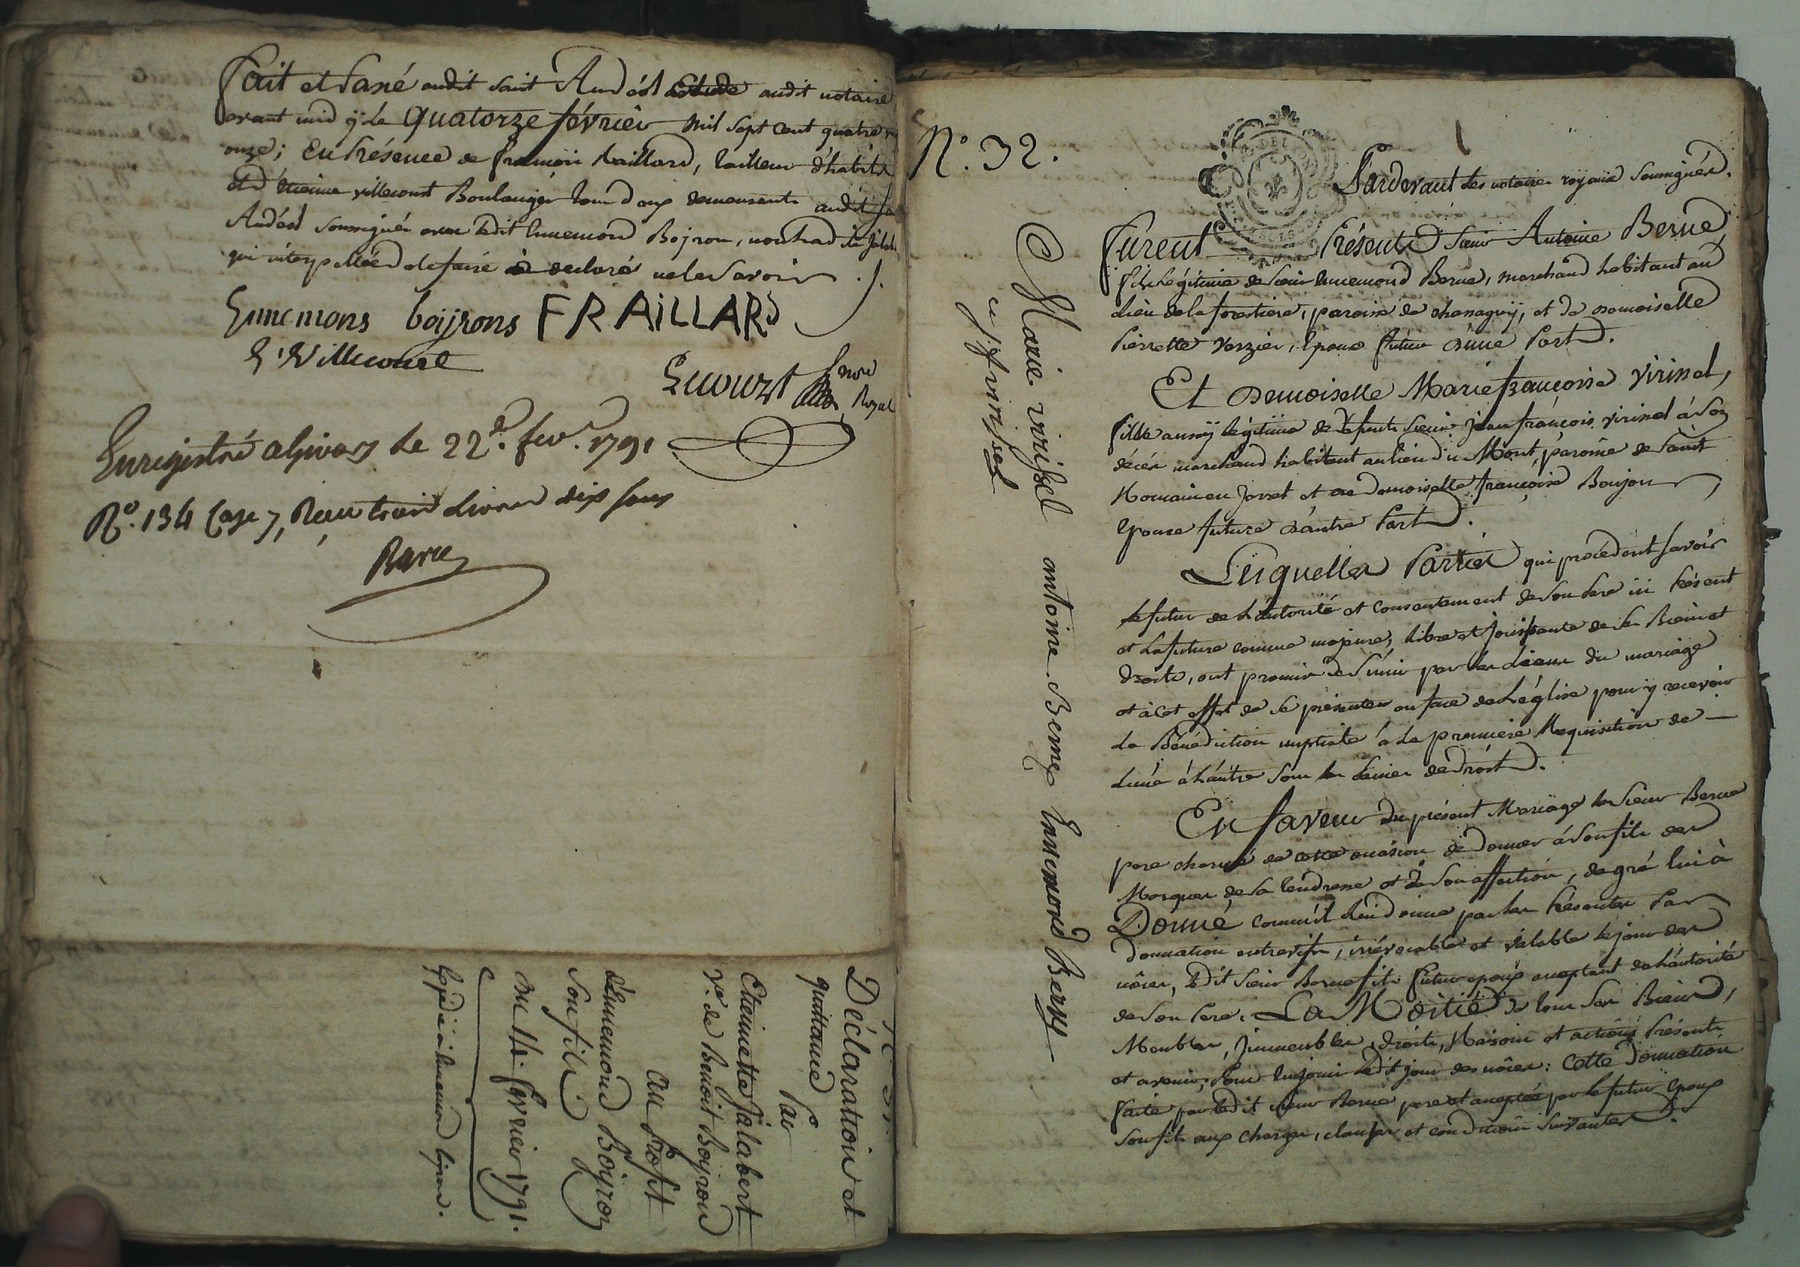 Fait et Passé audit saint Andéol Etude audit notaire
avant midy Le quatorze février mil sept cent quatre
onze; En Présence de françois Raillard, tailleur d'habits
et d'Etienne villecourt Boulanger tous deux demeurants audit
Andéol soussignés avec Ledit Ennemond Boiron, non Lad.
qui interpellée de le faire a declaré ne le savoir ./.
Ennemons boijrons FRAILLARD
E. Villecourt
Ecourt
Royal
Enregistré a Givors Le 22.e fev.r 1791
No. 134 Case 7, Reçu trois Livres dix sous
Declaration et
quittance
Par
Etiennette Jalabert
v.e de Benoit Boijron
au Profit
d'Ennemond Boijron
Son fils
du 14. fevrier 1791.
Expédié à Ennemond
No. 32.
Pardevant Les notaires royaux Soussignés.
Furent Présents Sieur Antoine Berne,
fils Légitime de sieur Ennemond Berne, marchand habitant au
Lieu de la forestiere, paroisse de chassagny, et de demoiselle
Pierrette Verzier, Epoux futur d'une Part.
Et Demoiselle Marie françoise Virisel,
fille aussy Légitime de defunt Sieur Jean françois virisel à son
décès marchand habitant au lieu du Mont, paroisse de Saint
Romain en Jarest et de demoiselle françoise Boujon,
Epouse future d'autre Part.
Lesquelles Parties qui procedent savoir
Le futur de L'autorité et Consentement de Son Pere ici Présent
et La future comme majeure, libre et jouissante de Ses Biens et
droits, ont promis de S'unir par les Liens du mariage
et à cet effet de Se présenter en face de L'église pour y recevoir
La Bénédiction nuptiale à La premiere Requisition de
L'un à L'autre Sous les Peines de droit.
En faveur du présent Mariage le Sieur Berne
pere charmé de cette occasion de donner à Son fils des
Marques de Sa tendresse et de Son affection, de gré lui à
Donné comme il Lui donne par les Présentes Par
donnation entrevifs, irrévocable et valable le jour des
nôces, Ledit Sieur Berne fils futur epoux acceptant de L'autorité
de Son Pere, La Moitié de tous Ses Biens,
Meubles, Immeubles, droits, Raisons et actions Présents
et avenir, Pour En jouir Ledit jour des nôces: Cette donnation
faite par Ledit Sieur Berne pere et acceptée par le futur Epoux
Son fils aux charges, clauses et conditions Suivantes.
Marie virisel antoine Berne Ennemond Berne